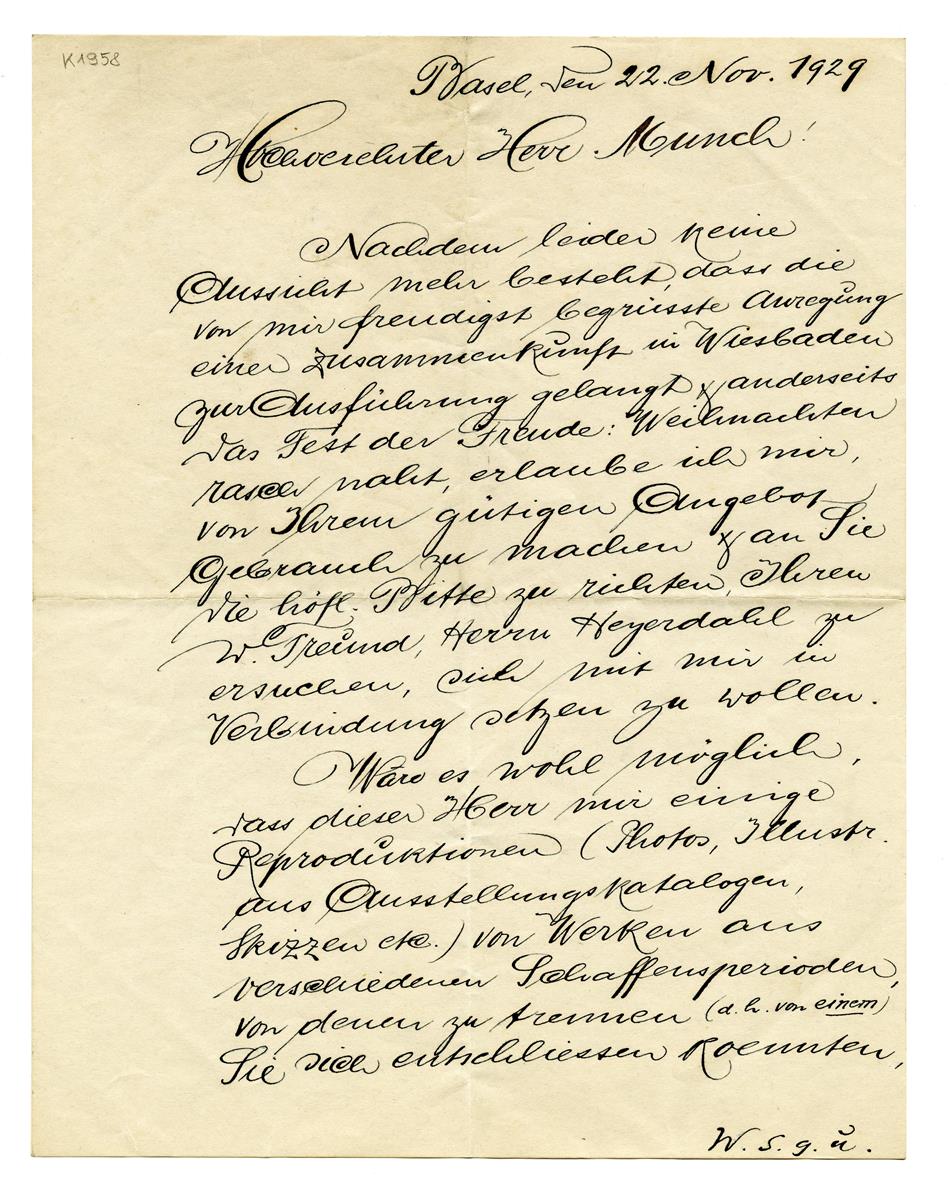 K1958
Basel, den 22. Nov. 1929
Hochverehrter Herr Munch!
Nachdem leider keine
Aussicht mehr besteht, dass die
von mir freudigst begrüsste Anregung
einer Zusammenkunft in Wiesbaden
zur Ausführung gelangt & anderseits
das Fest der Freude: Weihnachten
rasch naht, erlaube ich mir,
von Ihrem gütigen Angebot
Gebrauch zu machen & an Sie
die höfl. Bitte zu richten, Ihren
w. Freund, Herrn Heyerdahl zu
ersuchen, sich mit mir in
Verbindung setzen zu wollen.
Wäre es wohl möglich,
dass dieser Herr mir einige
Reproduktionen (Photos, Illustr.
aus Ausstellungskatalogen,
Skizzen etc.) von Werken aus
verschiedenen Schaffensperioden,
von denen zu trennen (d.h. von einem)
Sie sich entschliessen koennten,
W. s. g. u.